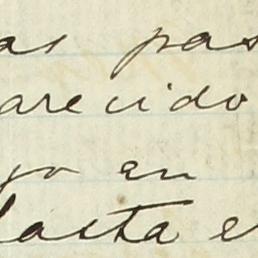 as pas
arecido
go en
hasta e